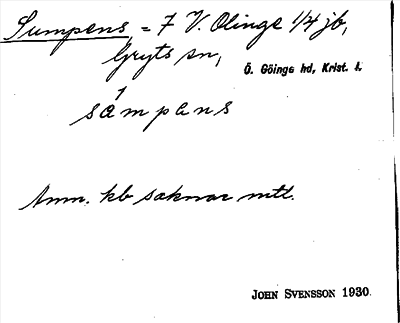 Sumpens, = 7 V. Olinge 1/4 jb,
Gryts sn,
Ö. Göinge hd, Krist. l.
sámpans
Anm. kb saknar mtl.
JOHN SVENSSON 1930.